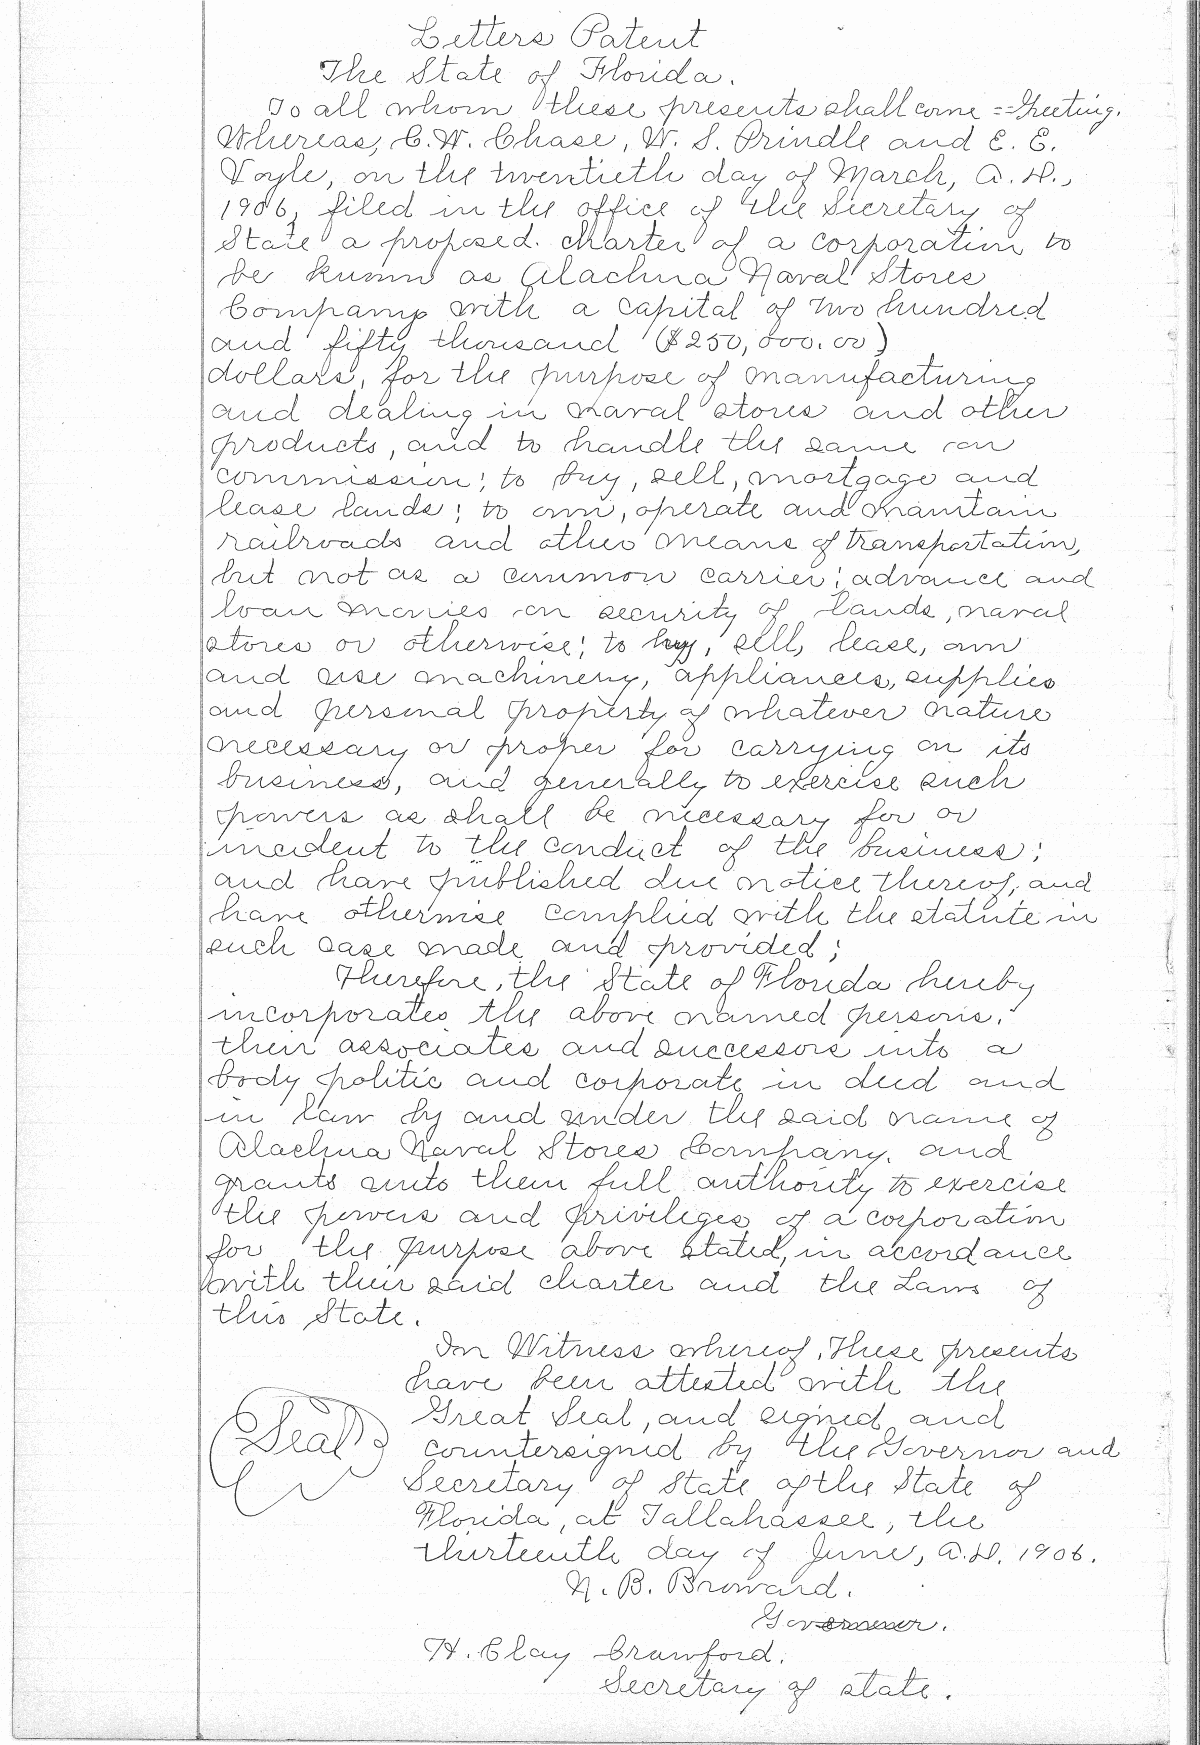 Letters Patent
The State of Florida.
To all whom these presents shall come == Greeting.
Whereas, C. W. Chase, W. S. Prindle and E. E.
Voyle, on the twentieth day of March, A. D.,
1906, filed in the office of the Secretary of
State a proposed. charter of a corporation to
be known as Alachua Naval Stores
Company with a capital of two hundred
and fifty thousand ($250,000.00)
dollars, for the purpose of manufacturing
and dealing in naval stores and other
products, and to handle the same on
commission; to buy, sell, mortgage and
lease lands; to own, operate and maintain
railroads and other means of transportation,
but not as a common carrier; advance and
loan monies on security of lands, naval
stores or otherwise; to buy, sell, lease, own
and use machinery, appliances, supplies
and personal property of whatever nature
necessary or proper for carrying on its
business, and generally to exercise such
powers as shall be necessary for or
incident to the conduct of the business;
and have published due notice thereof, and
have otherwise complied with the statute in
such case made and provided;
Therefore, the State of Florida hereby
incorporates the above named persons,
their associates and successors into a
body politic and corporate in deed and
in law by and under the said name of
Alachua Naval Stores Company, and
grants unto them full authority to exercise
the powers and privileges of a corporation
for the purpose above stated, in accordance
with their said charter and the Laws of
this State.
In Witness whereof, these presents
have been attested with the
Great Seal, and signed and
Seal countersigned by the Governor and
Secretary of State of the State of
Florida, at Tallahassee, the
thirteenth day of June, A. D. 1906.
N. B. Broward.
Governor.
H. Clay Crawford.
Secretary of state.